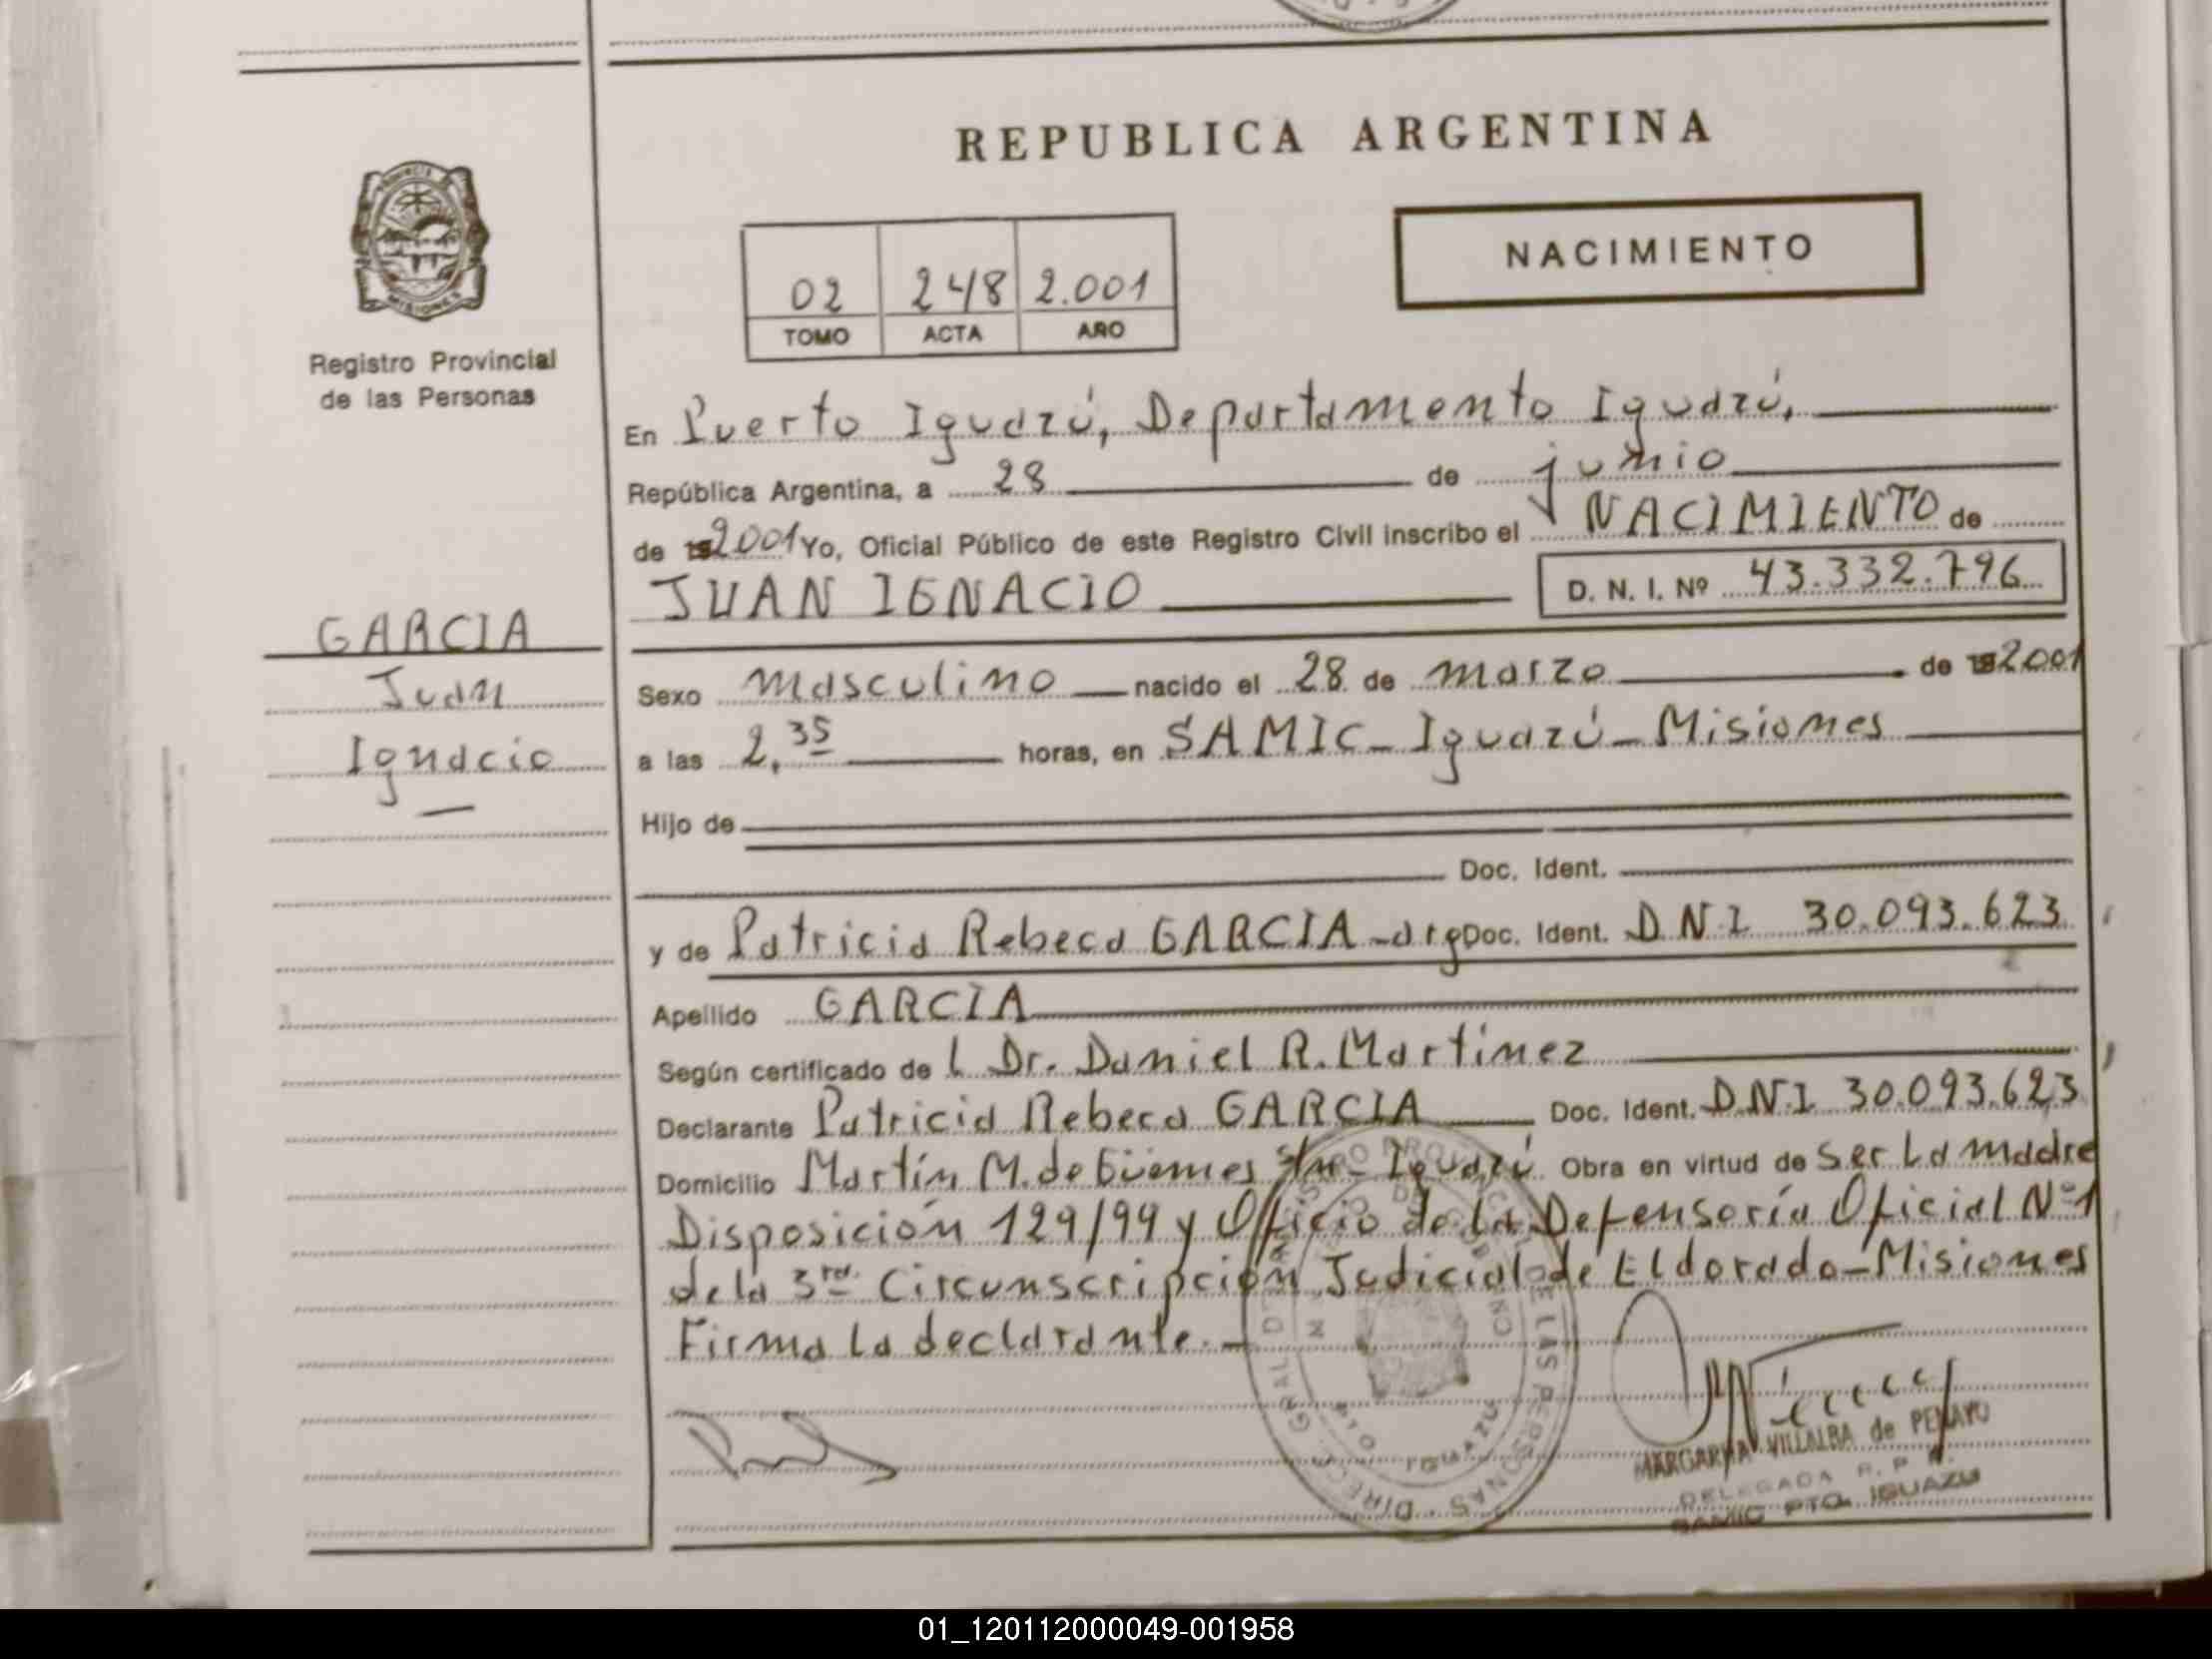 REPUBLICA ARGENTINA
NACIMIENTO
02 248 2.001
TOMO ACTA AÑO
PROVINCIA DE MISIONES
Registro Provincial
de las Personas
En Puerto Iguazú, Departamento Iguazú,
República Argentina, a 28 de junio
de 192001 Yo, Oficial Público de este Registro Civil inscribo el NACIMIENTO de
JUAN IGNACIO D. N. I. Nº 43.332.796
GARCIA
Juan
Ignacio
Sexo masculino nacido el 28 de marzo de 192001
a las 2,35 horas, en SAMIC_ Iguazú_ Misiones
Hijo de
Doc. Ident.
y de Patricia Rebeca GARCIA -arg Doc. Ident. D N I 30.093.623
Apellido GARCIA
Según certificado de l Dr. Daniel R. Martínez
Declarante Patricia Rebeca GARCIA Doc. Ident. D.N.I 30.093.623
Domicilio Martín M. de Güemes s/n- Iguazú Obra en virtud de ser la madre
Disposición 129/99 y Oficio de la Defensoría Oficial Nº 1
de la 3ra. Circunscripción Judicial de Eldorado-Misiones
Firma la declarante.-
MARGARITA VILLALBA de PENAYO
DELEGADA R. P. P.
SAMIC PTO. IGUAZU
01_120112000049-001958